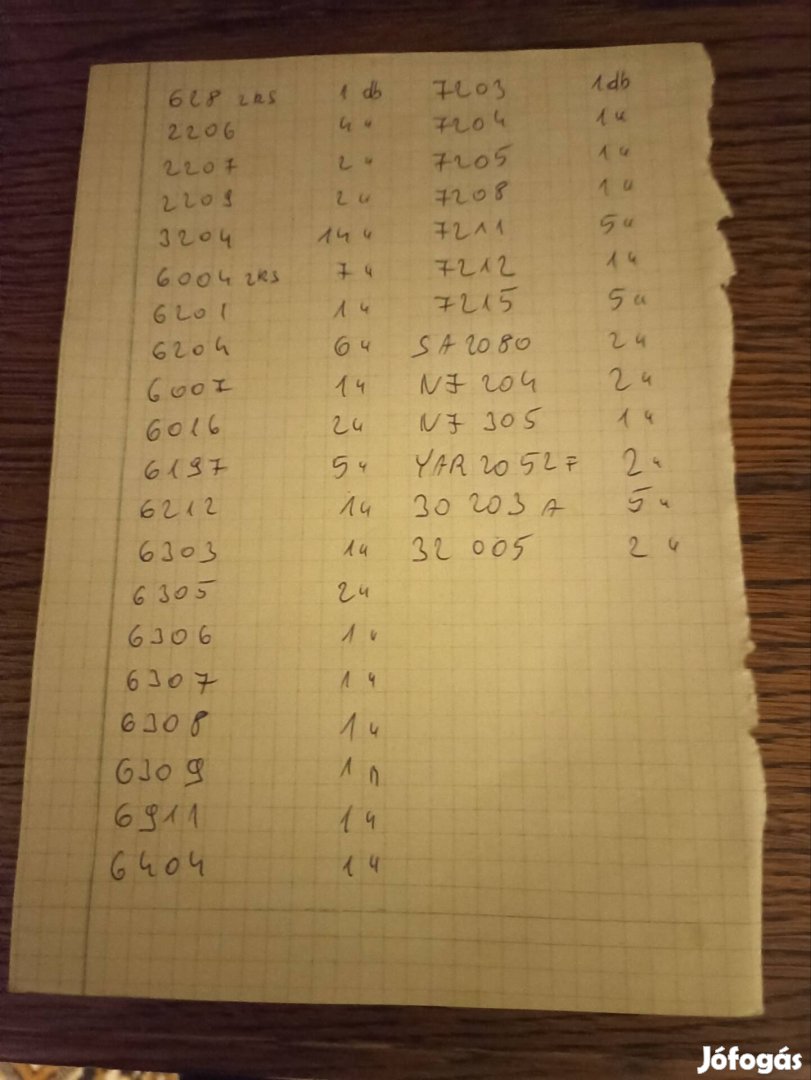 628 2RS 1 db 7203 1 db
2206 4 " 7204 1 "
2207 2 " 7205 1 "
2209 2 " 7208 1 "
3204 14 " 7211 5 "
6004 2RS 7 " 7212 1 "
6201 1 " 7215 5 "
6204 6 " SA 2080 2 "
6007 1 " NJ 204 2 "
6016 2 " NJ 305 1 "
6197 5 " YAR 2052 F 2 "
6212 1 " 30 203 A 5 "
6303 1 " 32 005 2 "
6305 2 "
6306 1 "
6307 1 "
6308 1 "
6309 1 "
6911 1 "
6404 1 "
Jófogás